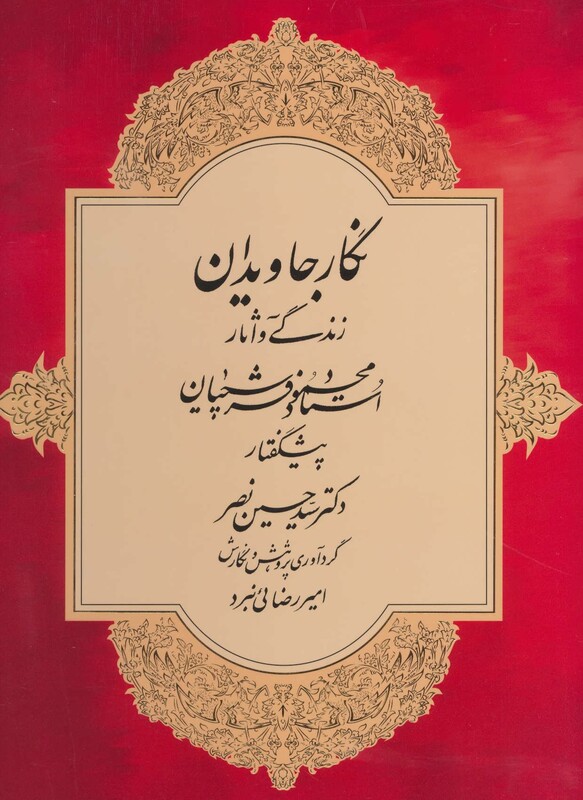 نگار جاویدان
زندگی و آثار
استاد محمود فرشچیان
پیشگفتار
دکتر سید حسین نصر
گردآوری پژوهش و نگارش
امیر رضائی نبرد